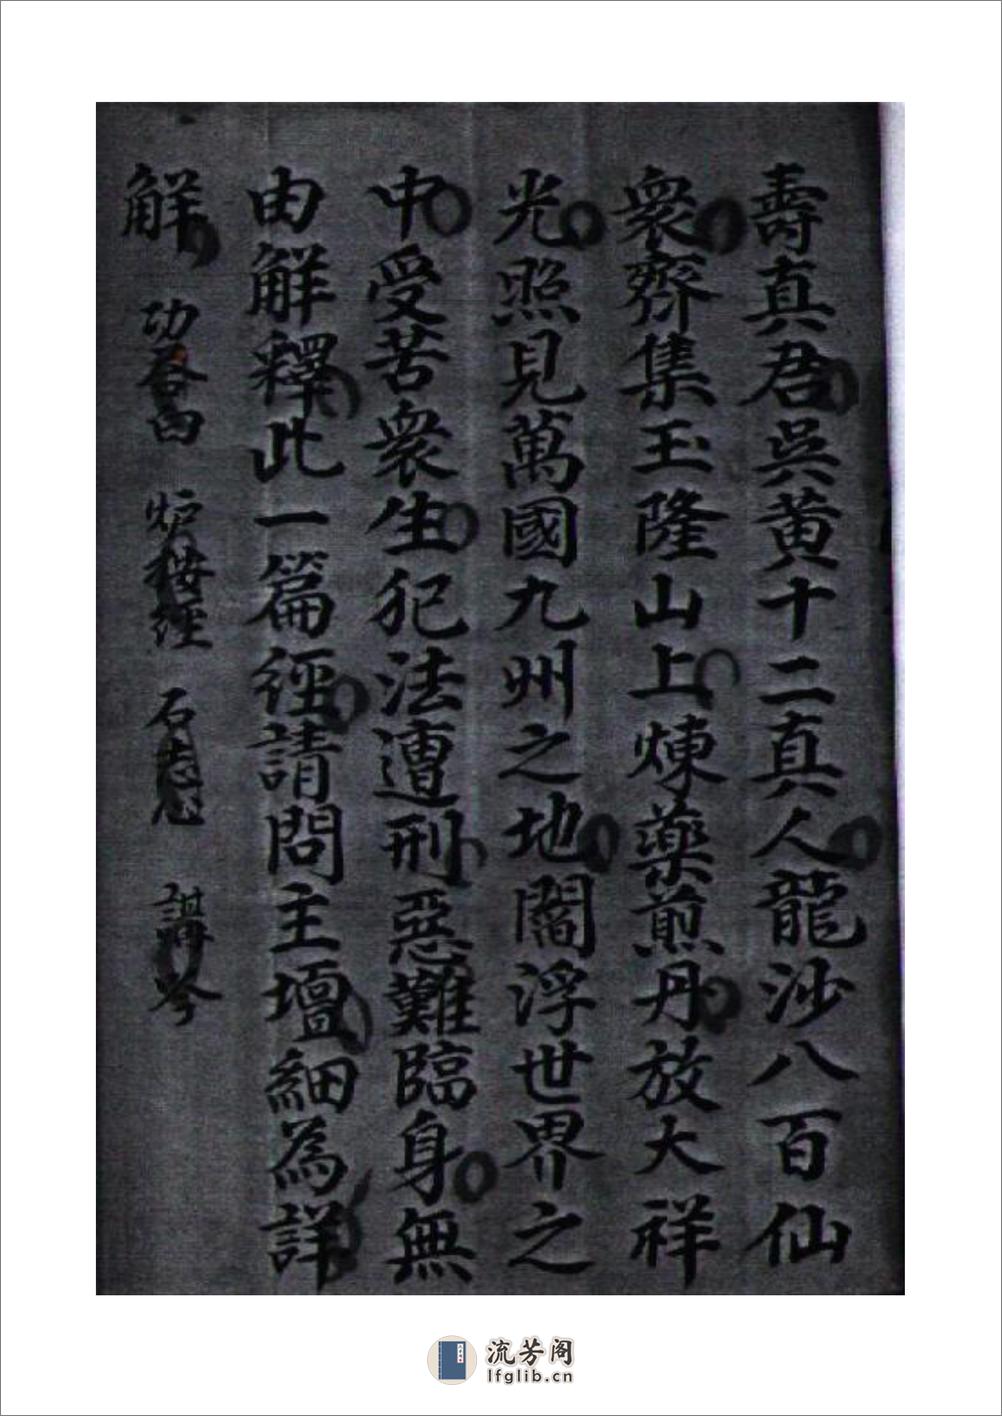 壽真君吳黄十二真人龍沙八百仙
衆齊集玉隆山上煉藥煎丹放大祥
光照見萬國九州之地閻浮世界之
中受苦衆生犯法遭刑惡難臨身無
由解釋此一篇經請問主壇細為詳
解 功 白 炉 按經 石 志心 講 琴
流芳阁
lfglib.cn